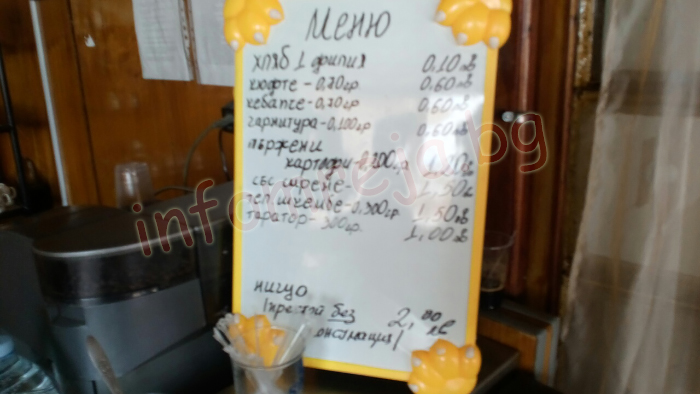 Меню
хляб 1 филия 0,10лв
кюфте - 0,70гр 0,60лв
кебапче - 0,70гр 0,60лв
гарнитура - 0,100гр 0,60лв
пържени
картофи - 0,200гр 1,20лв
със сирене - 1,50лв
тел. шкембе - 0,300гр. 1,50лв
таратор - 300гр. 1,00лв
нищо
/престой без 2,00 лв
консумация/
infomreja.bg